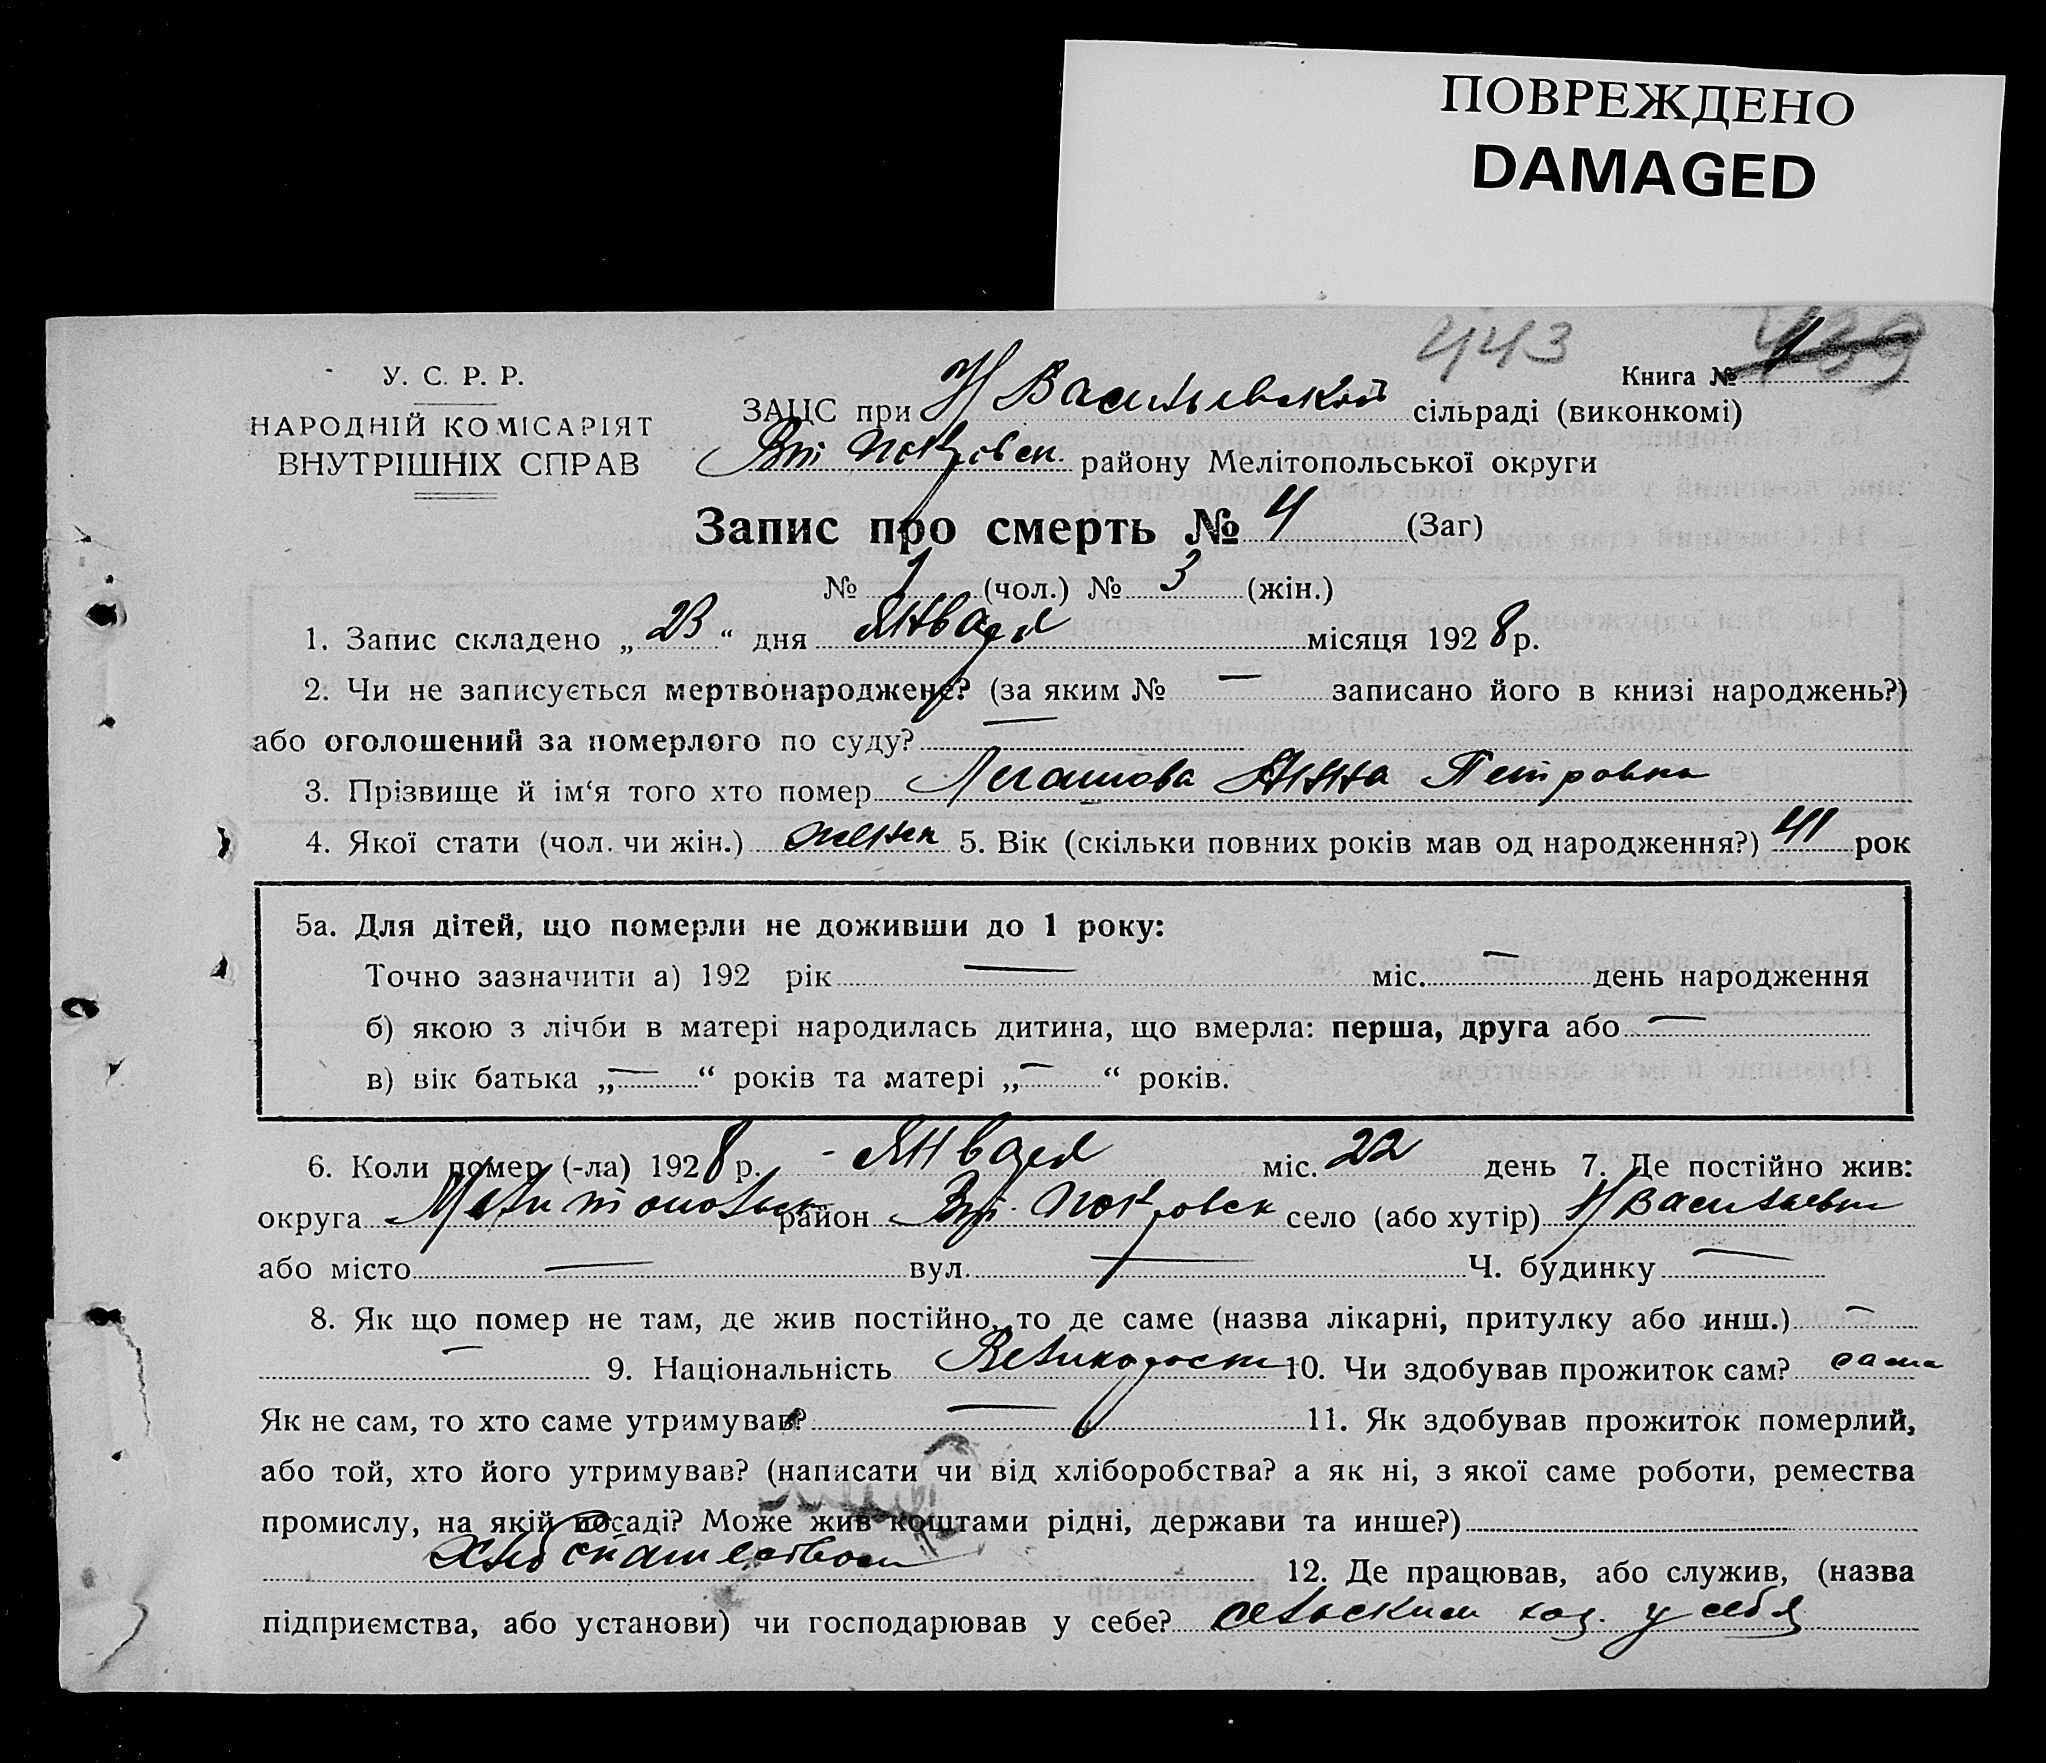 ПОВРЕЖДЕНО
DAMAGED
443 439
Книга № 1
У. С. Р. Р.
НАРОДНІЙ КОМІСАРІЯТ
ВНУТРІШНІХ СПРАВ
ЗАЦС при Н Васильевской сільраді (виконкомі)
Вт Покровск. району Мелітопольської округи
Запис про смерть № 4 (Заг)
№ 1 (чол.) № 3 (жін.)
1. Запис складено „23“ дня Января місяця 1928 р.
2. Чи не записується мертвонароджене? (за яким № — записано його в книзі народжень?)
або оголошений за померлого по суду? —
3. Прізвище й ім‘я того хто помер Легашова Анна Петровна
4. Якої стати (чол. чи жін.) женск 5. Вік (скільки повних років мав од народження?) 41 рок
5а. Для дітей, що померли не доживши до 1 року:
Точно зазначити а) 192 рік — міс. — день народження
б) якою з лічби в матері народилась дитина, що вмерла: перша, друга або —
в) вік батька „—“ років та матері „—“ років.
6. Коли помер (-ла) 1928 р. - Января міс. 22 день 7. Де постійно жив:
округа Мелитопольск район Вт. Покровск село (або хутір) Н Васильевк
або місто — вул. — Ч. будинку —
8. Як що помер не там, де жив постійно, то де саме (назва лікарні, притулку або инш.) —
— 9. Національність Великорост 10. Чи здобував прожиток сам? сама
Як не сам, то хто саме утримував? — 11. Як здобував прожиток померлий,
або той, хто його утримував? (написати чи від хліборобства? а як ні, з якої саме роботи, ремества
промислу, на якій посаді? Може жив коштами рідні, держави та инше?)
Хлебопашеством 12. Де працював, або служив, (назва
підприємства, або установи) чи господарював у себе? сельским хоз. у себя